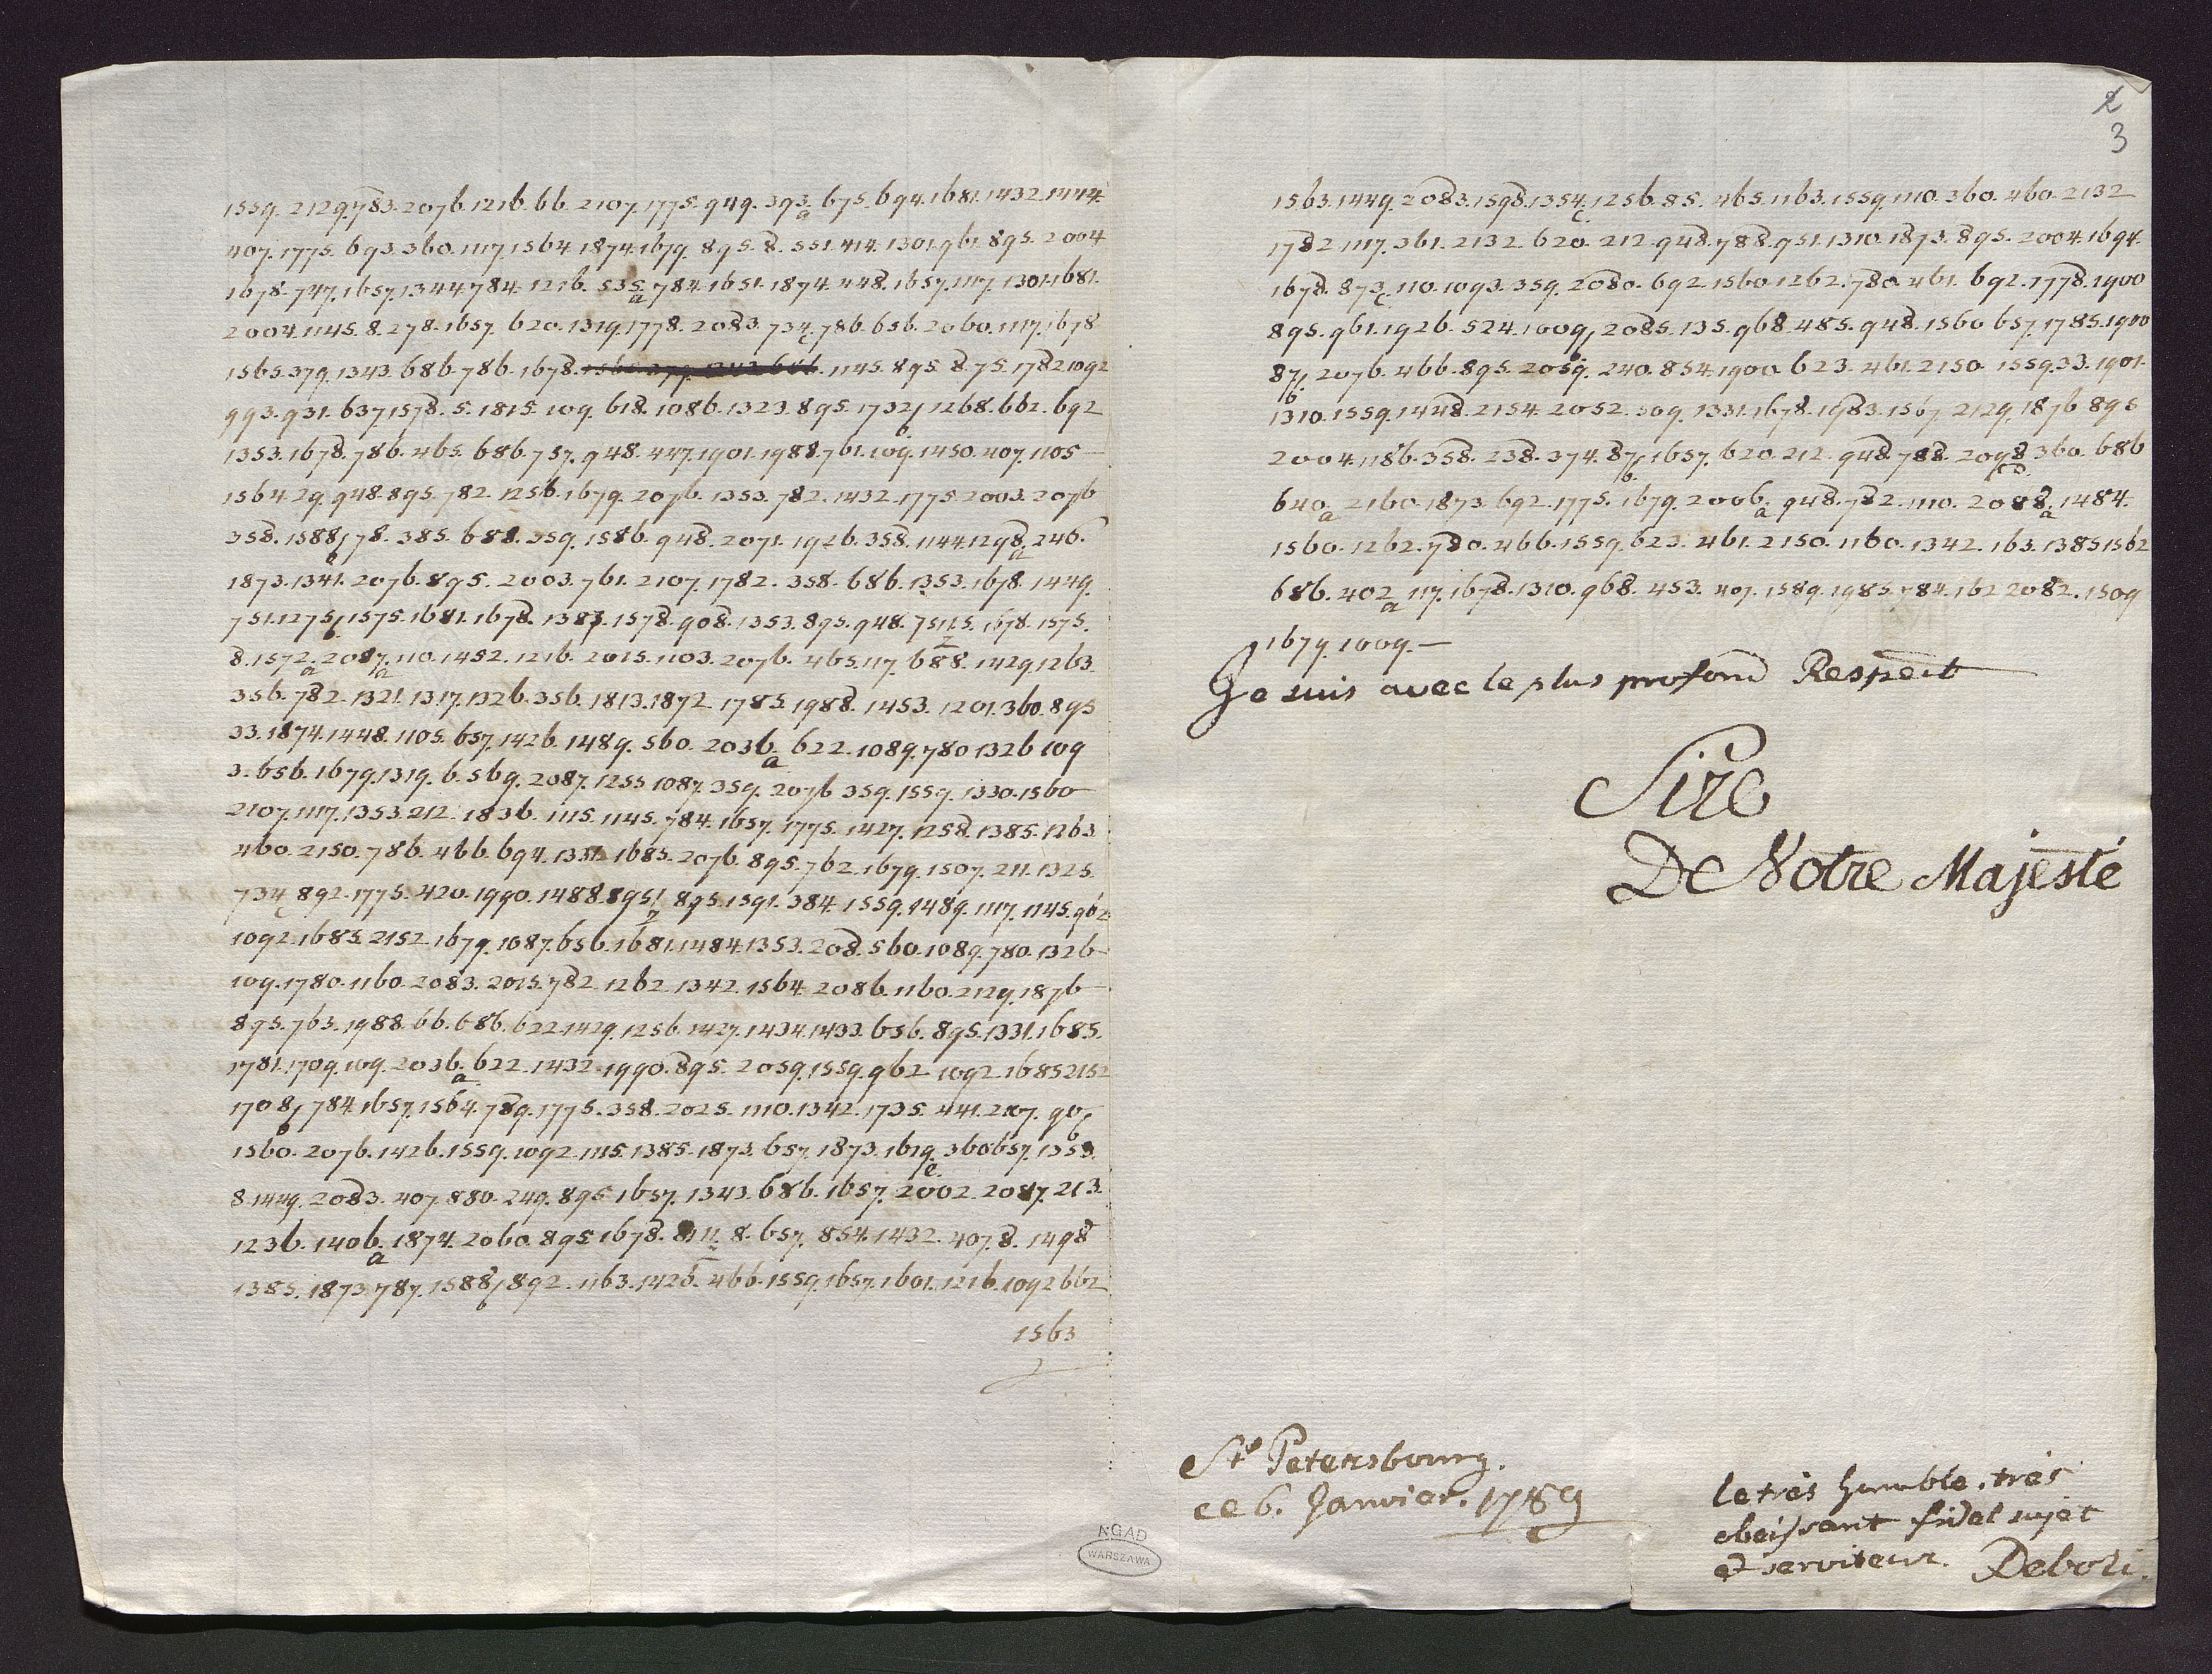 1559. 2129. 783. 2076. 1216. 66. 2107. 1775. 949. 393. a 675. 694. 1681. 1432. 1444.
407. 1775. 693. 360. 1117. 1564. 1874. 1679. 895. 8. 551. 414. 1301. 961. 895. 2004
1678. 747. 1657. 1344. 784. 1216. 535. a 784. 1651. 1874. 448. 1657. 1117. 1301. 1681.
2004. 1145. 8. 278. 1657. 620. 1319. 1778. 2083. 734. c 786. 656. 2060. 1117. 1678
1565. 379. 1343. 686. 786. 1678. 1145. 895. 8. 75. 1782 1092
993. 931. 637. 1578. 5. 1815. 109. 618. 1086. 1323. 895. 1732. b 1268. 662. 692
1353. 1678. 786. 465. 686. 757. 948. 447. 1901. 1988. 761. 109. 1450. 407. 1105
1564. 29. 948. 895. 782. 1256. 1679. 2076. 1353. 782. 1432. 1775. 2003. 2076
358. 1588. b 78. 385. 688. 359. 1586. 948. 2071. 1926. 358. 1144. 1298. a 246.
1873. 1341. 2076. 895. 2003. 761. 2107. 1782. 358. 686. 1353. 1678. 1449.
751. 1275. b 1575. 1681. 1678. 1387. 1578. 908. 1353. 895. 948. 751. 15. 1678. 1575.
8. 1572. a 2087. a 110. 1452. 1216. 2015. 1103. 2076. 465. 117. 688. 1429. 1263
356. 782. 1321. 1317. 1326. 356. 1813. 1872. 1785. 1988. 1453. 1201. 360. 895
33. 1874. 1448. 1105. 657. 1426. 1489. 560. 2036. a 622. 1089. 780. 1326 109
3. 656. 1679. 1319. 6. 569. 2087. 1255. 1087. 359. 2076 359. 1559. 1330. 1560
2107. 1117. 1353. 212. 1836. 1115. 1145. 784. 1657. 1775. 1427. 1258. 1385. 1263
460. 2150. 786. 466. 694. 1331. 1685. 2076. 895. 762. 1679. 1507. 211. 1325.
734. c 892. 1775. 420. 1990. 1488. 895. 895. 1391. 384. 1559. 1489. 1117. 1145. 962
1092. 1685. 2152. 1679. 1087. 656. 1681. 1484. 1353. 208. 560. 1089. 780. 1326
109. 1780. 1160. 2083. 2025. 782. 1262. 1342. 1564. 2086. 1160. 2129. 1876
895. 763. 1988. 66. 686. 622. 1429. 1256. 1427. 1434. 1433. 656. 895. 1331. 1685.
1781. 1709. 109. 2036. a 622. 1432. 1990. 895. 2059. 1559. 962. 1092. 1685 2152
1708. b 784. 1657. 1564. 789. 1775. 358. 2025. 1110. 1342. 1735. 441. 2107. 90. b
1560. 2076. 1426. 1559. 1092. 1115. 1385. 1873. 657. 1873. 1619. c 360 657. 1353.
8. 1449. 2083. 407. 880. 249. 895. 1657. 1343. 686. 1657. 2002. 2087. 213.
1236. 1406. a 1874. 2060. 895. 1678. 8. 657. 854. 1432. 407. 8. 1498
1385. 1873. 787. 1588. b 892. 1163. 1426. 466. 1559. 1657. 1601. 1216. 1092 662
1563
2
3
1563. 1449. 2083. 1598. 1354. c 1256. 85. 465. 1163. 1559. 1110. 360. 460. 2132
1782. 1117. 361. 2132. 620. 212. 948. 788. 951. 1310. 1873. 895. 2004. 1694.
1678. 873. c 110. 1093. 359. 2080. 692. 1560. 1262. 780. 461. 692. 1778. 1900
895. 961. 1926. 524. 1009. 2085. 135. 968. 485. 948. 1560 657. 1785. 1900
87. b 2076. 466. 895. 2059. 240. 854. 1900. 623. 461. 2150. 1559. 33. 1901.
1310. 1559. 1448. 2154. 2052. 509. 1331. 1678. 1983. 1567. 2129. 1876 895
2004. 1186. 358. 238. 374. 87. b 1657. 620. 212. 948. 788. 2098. 360. 686
640. a 2160. 1873. 692. 1775. 1679. 2006. a 948. 782. 1110. 2088. a 1484.
1560. 1262. 780. 466. 1559. 623. 461. 2150. 1160. 1342. 163. 1385 1562
686. 402. a 117. 1678. 1310. 968. 453. 407. 1589. 1985. 784. 162 2082. 1509
1679. 1009. —
Je suis avec le plus profond Respect
Sire
De Votre Majesté
St Petersbourg.
ce 6. Janvier. 1789
le très humble, très
obeissant fidel sujet
et serviteur. Deboli.
AGAD
WARSZAWA